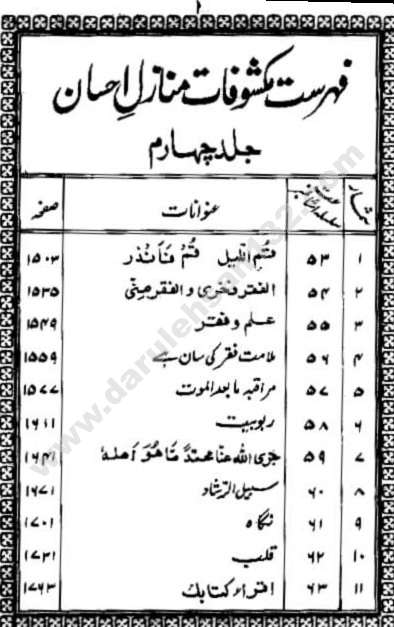 ۱
فہرست مکشوفات منازل احسان
جلد چہارم
شمار عنوانات صفحہ
۱ ۵۳ قم اللیل قم فانذر ۱۵۰۳
۲ ۵۴ الفقر فخری والفقر منی ۱۵۳۵
۳ ۵۵ علم و فقر ۱۵۴۹
۴ ۵۶ ملامت فقر کی سان ہے ۱۵۵۹
۵ ۵۷ مراقبہ ما بعد الموت ۱۵۷۷
۶ ۵۸ ربوبیت ۱۶۱۱
۷ ۵۹ جزی اللہ عنا محمدا ما ھو اھلہ ۱۶۴۱
۸ ۶۰ سبیل الرشاد ۱۶۷۱
۹ ۶۱ نگاہ ۱۷۰۱
۱۰ ۶۲ قلب ۱۷۳۱
۱۱ ۶۳ اقراء کتابک ۱۷۶۳
www.darulehsan132.com